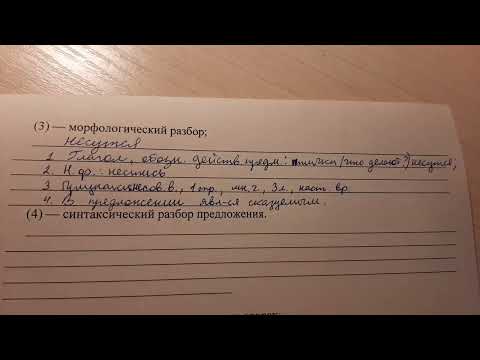 (3) — морфологический разбор;
Несутся
1. Глагол, обозн. действ. предм: птички (что делают?) несутся;
2. Н.ф.: нестись
3. несов.в., 1 спр., мн.ч., 3 л., наст. вр.
4. В предложении явл-ся сказуемым.
(4) — синтаксический разбор предложения.